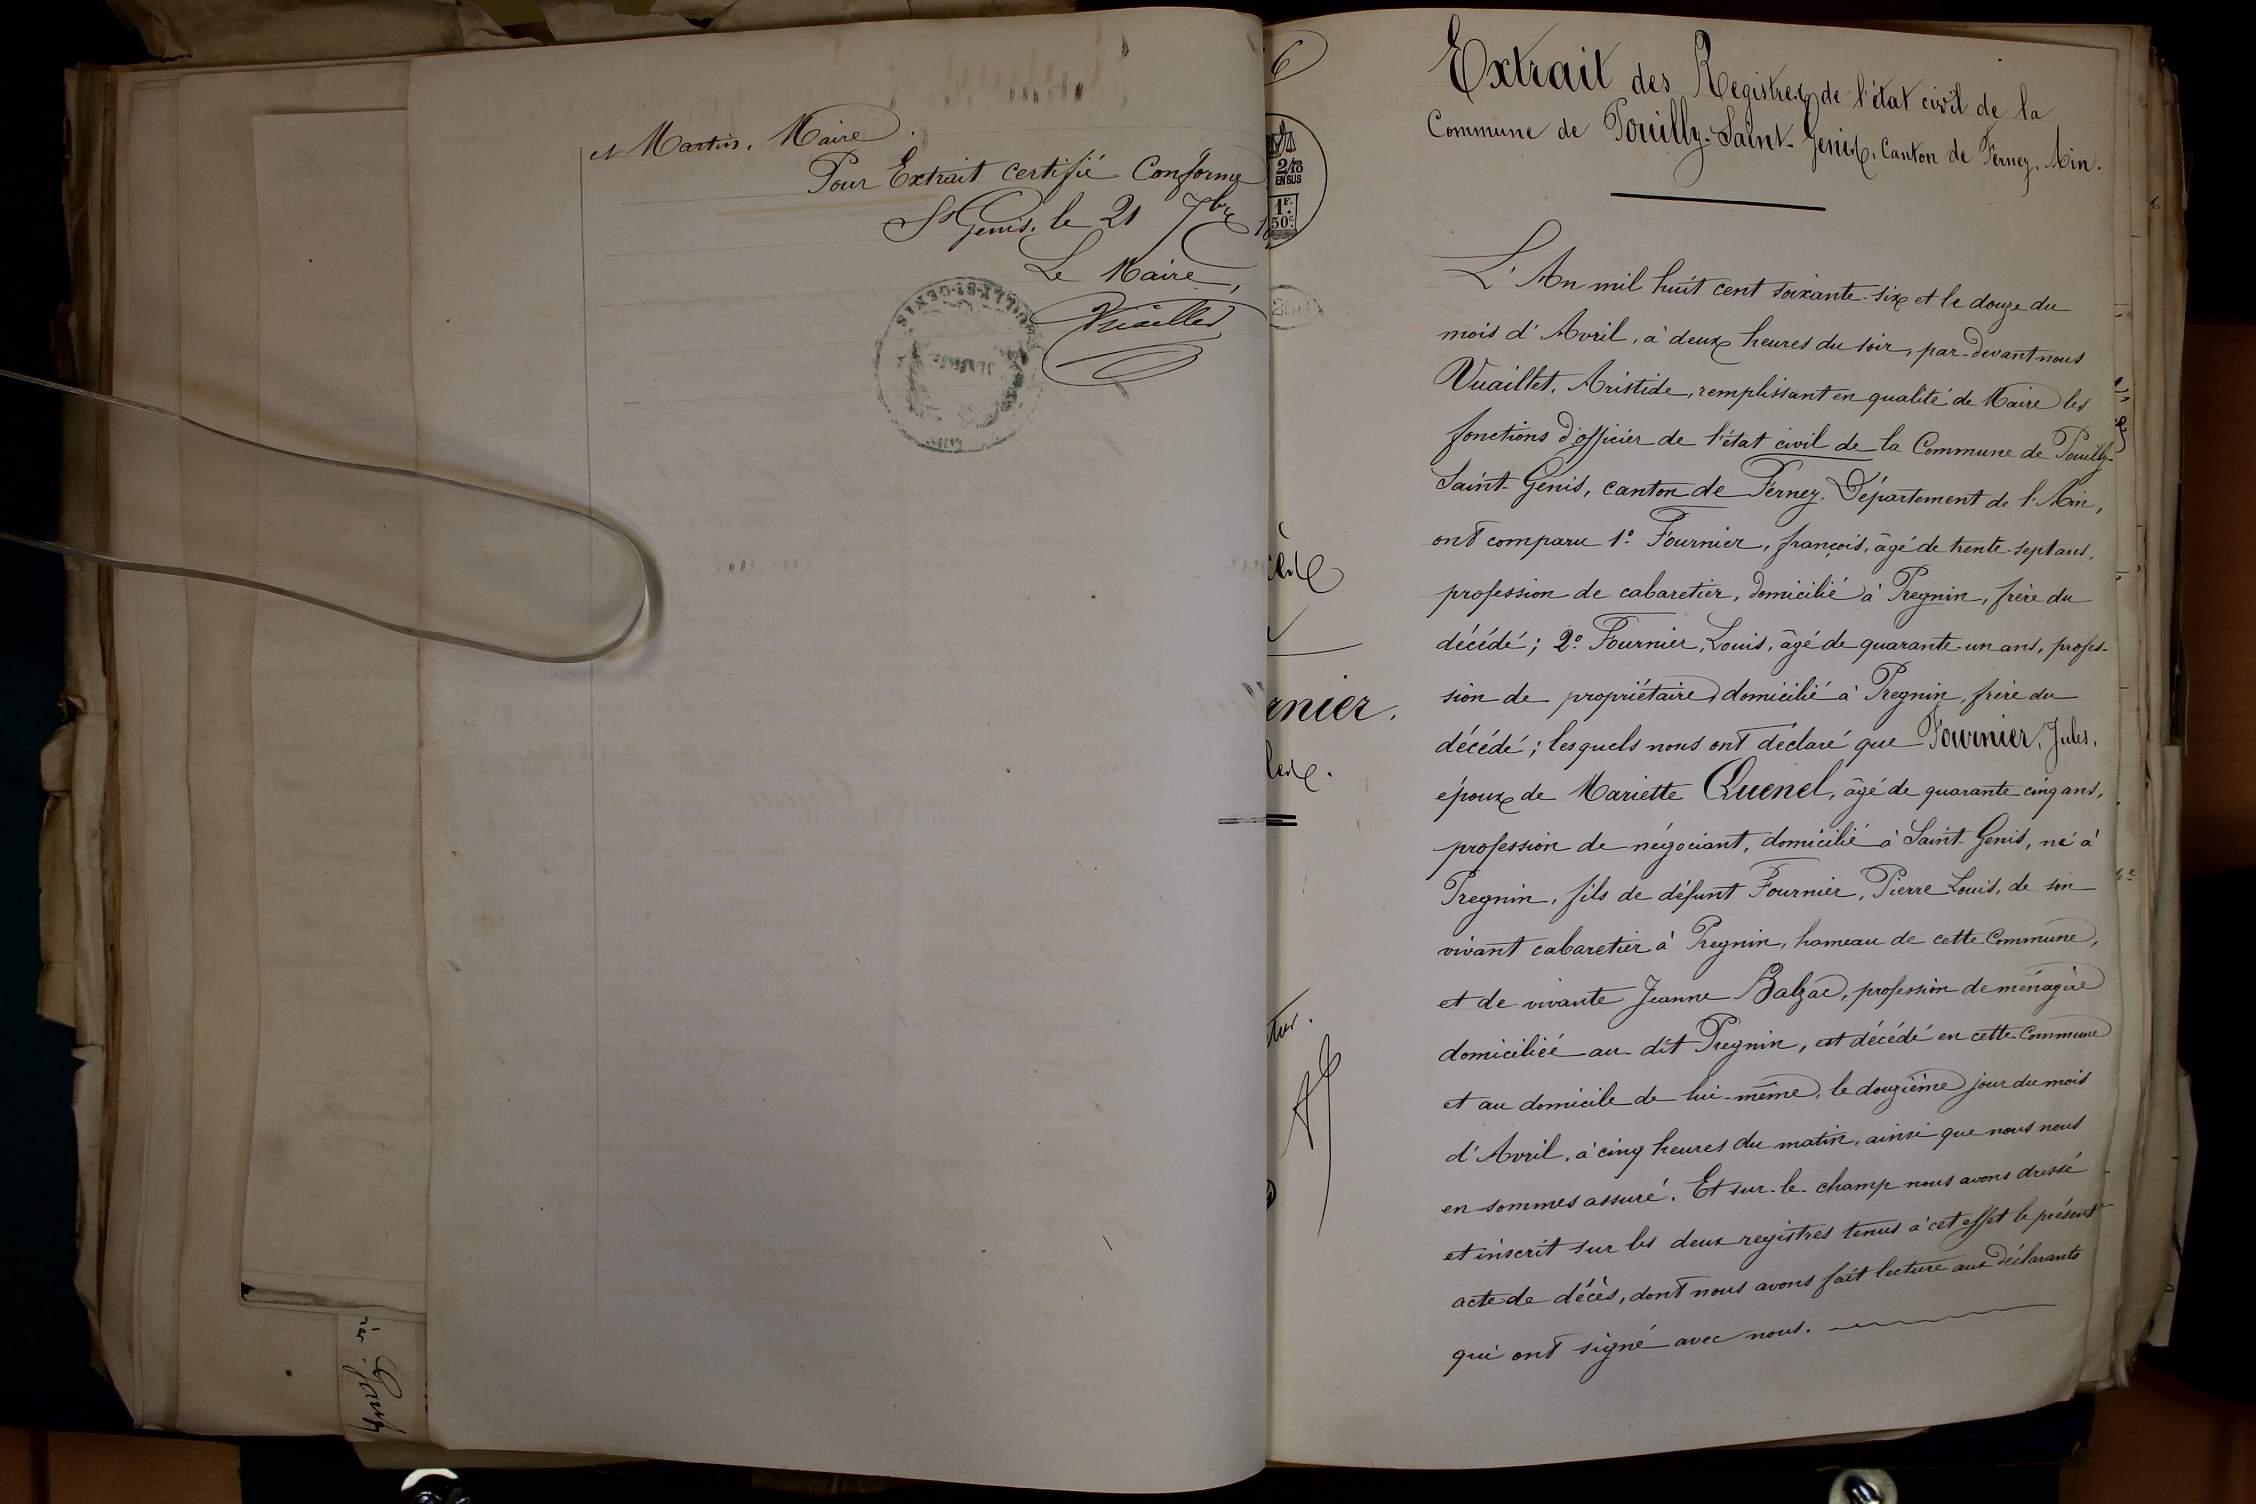 et Martin, Maire.
Pour Extrait certifié Conforme
St Genis, le 21 7bre
Le Maire,
Vuaillet
6
2/10
EN SUS
1F.
50c.
rnier.
Extrait des Registres de l'état civil de la
Commune de Pouilly-Saint-Genis, Canton de Ferney, Ain.
L'An mil huit cent soixante-six et le douze du
mois d'Avril, à deux heures du soir, par-devant nous
Vuaillet, Aristide, remplissant en qualité de Maire les
fonctions d'officier de l'état civil de la Commune de Pouilly-
Saint-Genis, canton de Ferney, Département de l'Ain,
ont comparu 1º Fournier, françois, âgé de trente-sept ans,
profession de cabaretier, domicilié à Pregnin, frère du
décédé; 2º Fournier, Louis, âgé de quarante-un ans, profes-
sion de propriétaire, domicilié à Pregnin, frère du
décédé; lesquels nous ont déclaré que Fournier, Jules,
époux de Mariette Quenel, âgé de quarante cinq ans,
profession de négociant, domicilié à Saint-Genis, né à
Pregnin, fils de défunt Fournier, Pierre Louis, de son
vivant cabaretier à Pregnin, hameau de cette Commune,
et de vivante Jeanne Balzac, profession de ménagère
domiciliée au dit Pregnin, est décédé en cette Commune
et au domicile de lui-même, le douzième jour du mois
d'Avril, à cinq heures du matin, ainsi que nous nous
en sommes assuré. Et sur-le-champ nous avons dressé
et inscrit sur les deux registres tenus à cet effet le présent
acte de décès, dont nous avons fait lecture aux déclarants
qui ont signé avec nous.